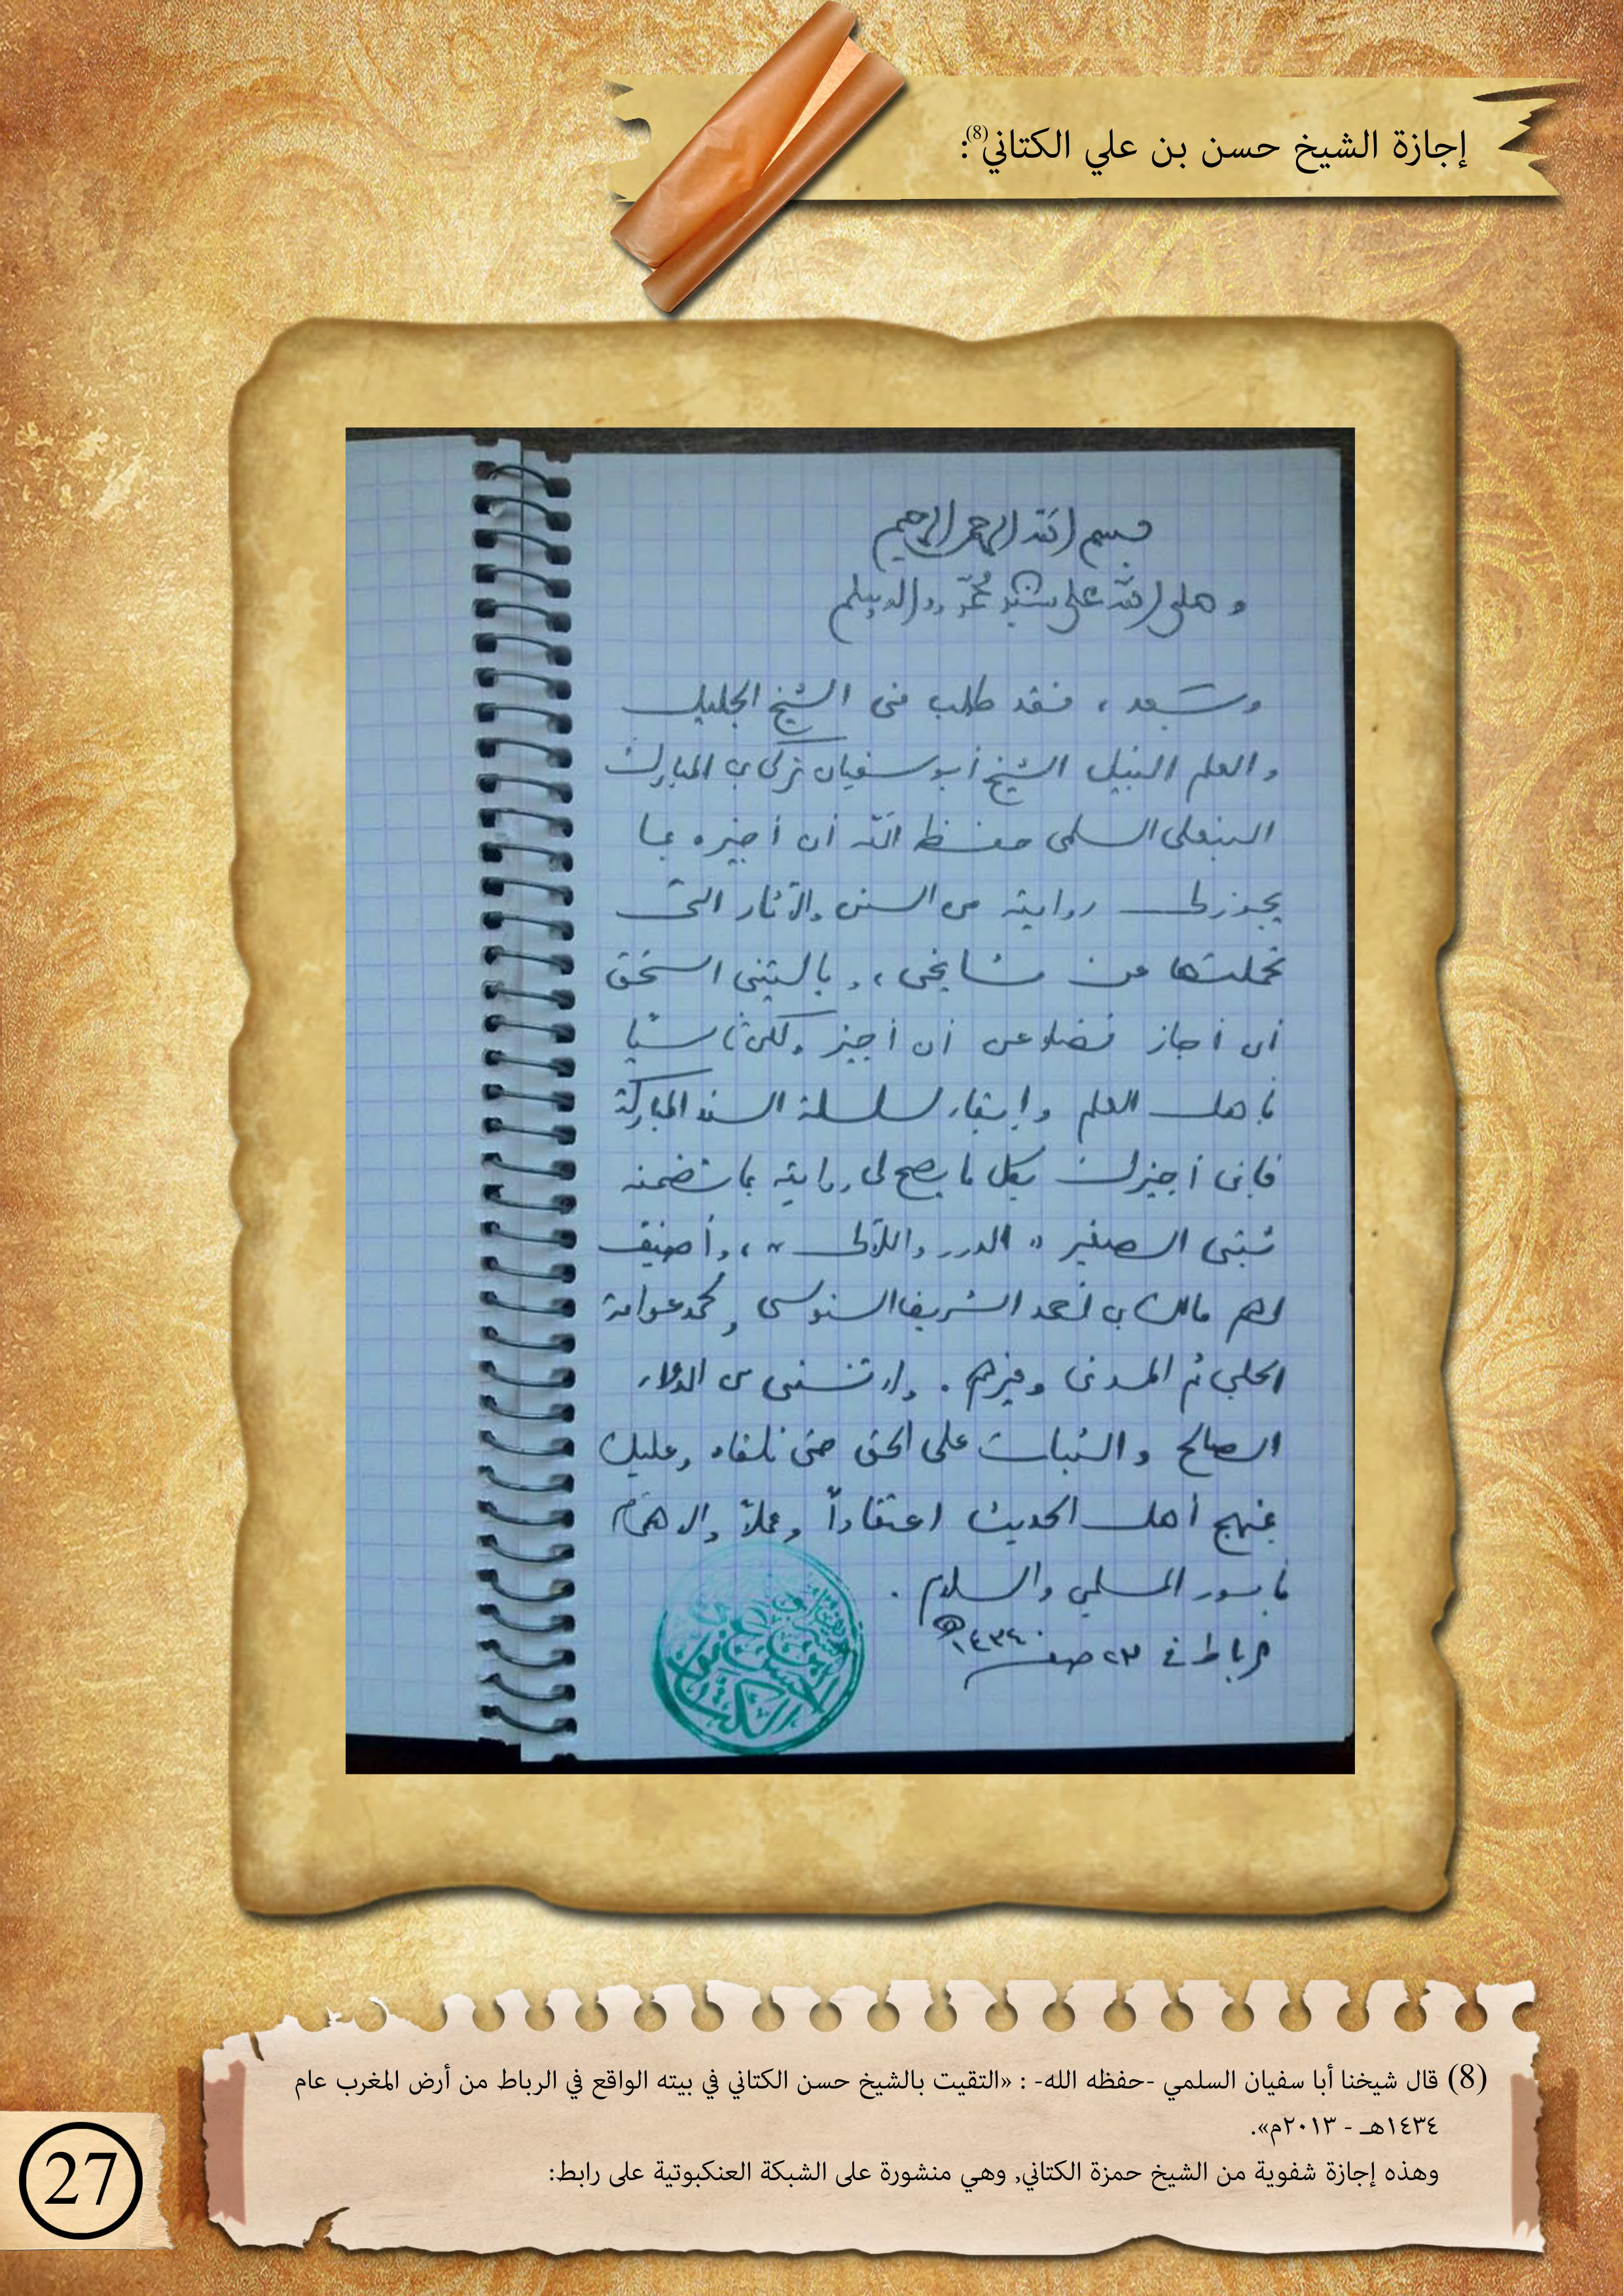 إجازة الشيخ حسن بن علي الكتاني(8):
بسم الله الرحمن الرحيم
وصلى الله على سيدنا محمد وآله وسلم
وبعد، فقد طلب مني الشيخ الجليل
والعلم النبيل الشيخ أبو سفيان تركي بن المبارك
البنعلي السلمي حفظه الله أن أجيزه بما
يجوز لي روايته من السنن والآثار التي
تحملتها عن مشايخي، وياليتني استحق
أن أجاز فضلا عن أن أجيز ولكن تأسيا
بأهل العلم وإبقاء لسلسلة السند المباركة
فإني أجيزك بكل ما يصح لي روايته بما تضمنه
ثبتي الصغير «الدرر واللآلي»، وأضيف
لهم مالك بن أحمد الشريف السنوسي ومحمد عوامة
الحلبي ثم المدني وغيرهم. ولا تنسني من الدعاء
الصالح والثبات على الحق حتى نلقاه وعليك
بمنهج أهل الحديث اعتقاداً وعملاً والاهتمام
بأمور المسلمين والسلام.
الرباط في ٢٣ صفر ١٤٣٤هـ
الكتاني
(8) قال شيخنا أبا سفيان السلمي -حفظه الله- : «التقيت بالشيخ حسن الكتاني في بيته الواقع في الرباط من أرض المغرب عام
١٤٣٤هـ - ٢٠١٣م».
وهذه إجازة شفوية من الشيخ حمزة الكتاني, وهي منشورة على الشبكة العنكبوتية على رابط:
27